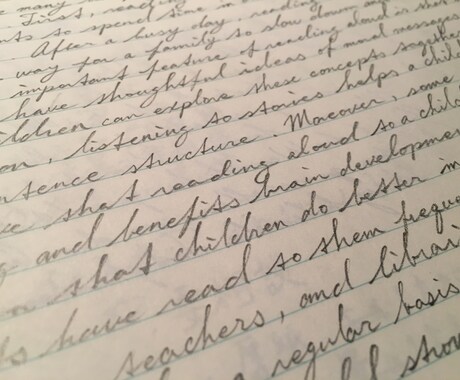 many
First, reading
to spend time in
After a busy day, reading
way for a family to slow down and
important feature of reading aloud is that
have thoughtful ideas of moral messages
children can explore these concepts together
listening to stories helps a child
sentence structure. Moreover, some
that reading aloud to a child
and benefits brain development
that children do better in
have read to them freque
teachers, and librari
regular basis